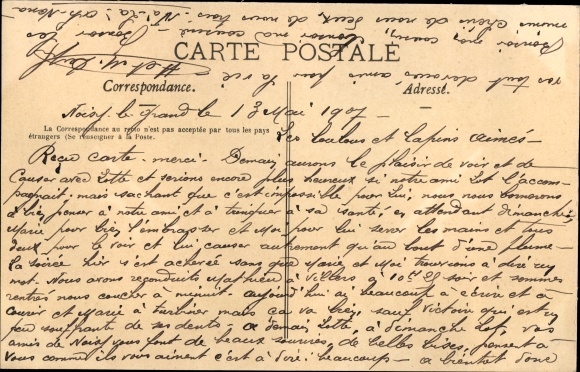 CARTE POSTALE
Correspondance.
Adressé.
La Correspondance au recto n'est pas acceptée par tous les pays
étrangers (Se renseigner à la Poste.
Noisy le Grand le 13 Mai 1907
Les loulous et lapins aimés
Reçu carte - merci - Demain aurons le plaisir de voir et de
causer avec Lotte et serions encore plus heureux si notre ami Lot l'accom-
pagnait - mais sachant que c'est impossible pour lui, nous nous bornerons
à bien penser à notre ami et à trinquer à sa santé, en attendant dimanche
Marie pour bien l'embrasser et Moi pour lui serrer les mains et tous
deux pour le voir et lui causer autrement qu'au bout d'une plume -
La soirée hier s'est achevée sans que Marie et Moi trouvions à dire un
mot. Nous avons reconduits Mathieu à Villiers à 10h 25 soir et sommes
rentrés nous coucher à minuit - aujourd'hui ai beaucoup à écrire et à
courir et Marie à turbiner mais ça va bien, sauf Victoire qui est un
peu souffrante de ses dents. à demain Lotte, à dimanche Lot, vos
amis de Noisy vous font de beaux sourires, de belles bises, pensent à
vous comme ils vous aiment c'est à dire: beaucoup - a bientôt donc
vos tout dévoués amis pour la vie
Bonsoir mon cousin, bonsoir ma cousine - Bonsoir les
chéris de nous deux, de nous trois